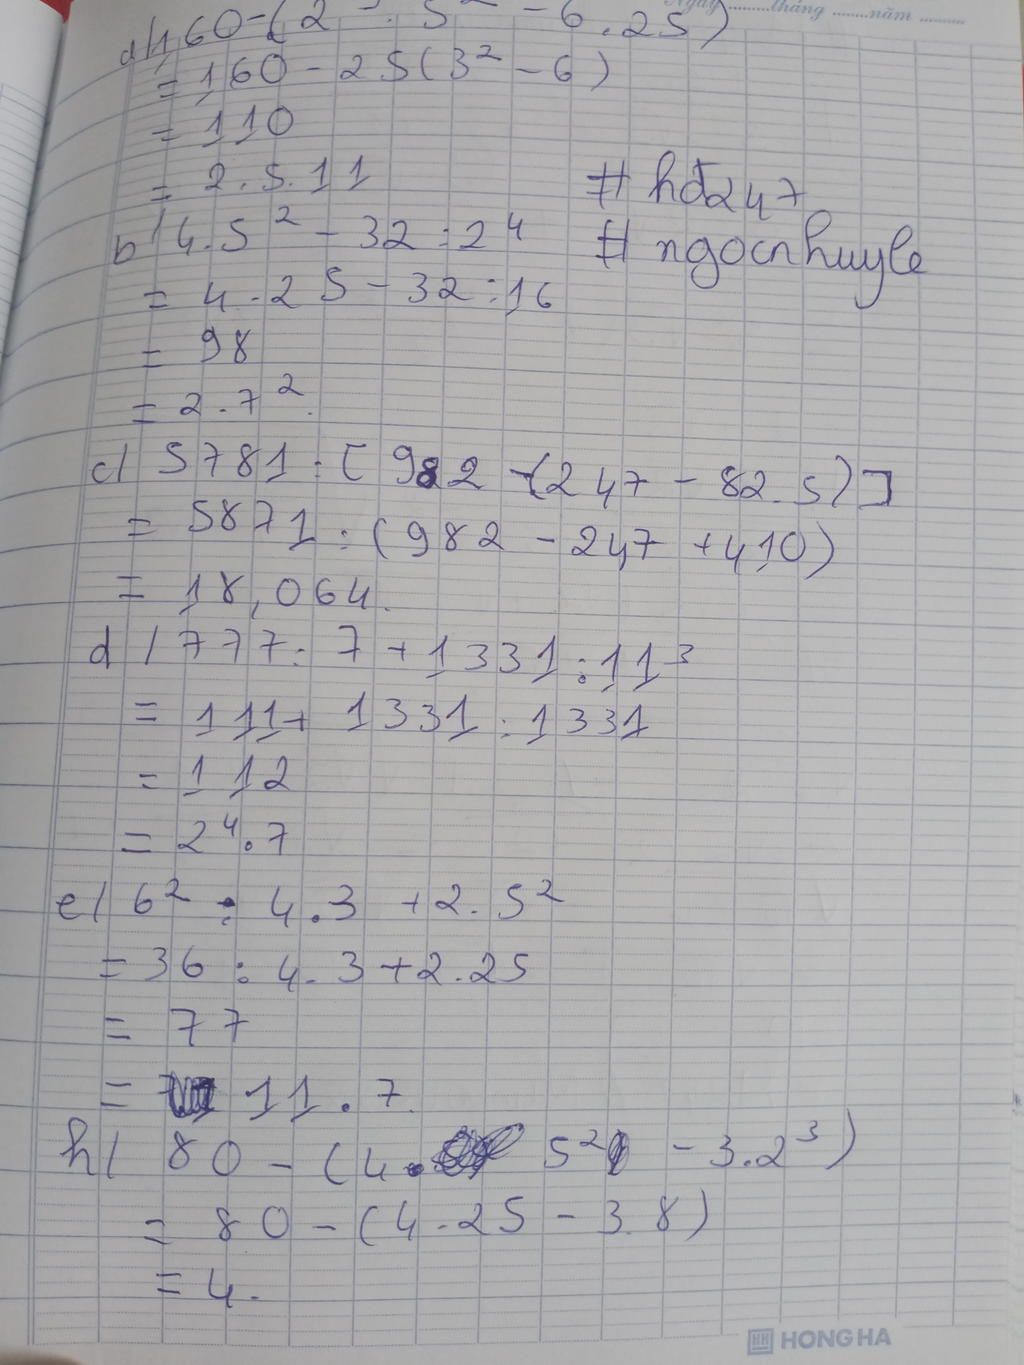 Ngày ........tháng .......năm .........
160-(2 . 5² - 6.25)
= 160 - 25(3² - 6)
= 110
= 2.5.11
# hđ247
b/ 4.5² - 32 : 2⁴
# ngocnhuyle
= 4.25 - 32 : 16
= 98
= 2.7².
c/ 5781 : [982 - (247 - 82.5)]
= 5871 : (982 - 247 + 410)
= 18,064.
d/ 777 : 7 + 1331 : 11³
= 111 + 1331 : 1331
= 112
= 2⁴.7
e/ 6² : 4.3 + 2.5²
= 36 : 4.3 + 2.25
= 77
= 11.7.
h/ 80 - (4. 5² - 3.2³)
= 80 - (4.25 - 3.8)
= 4.
HH HONG HA